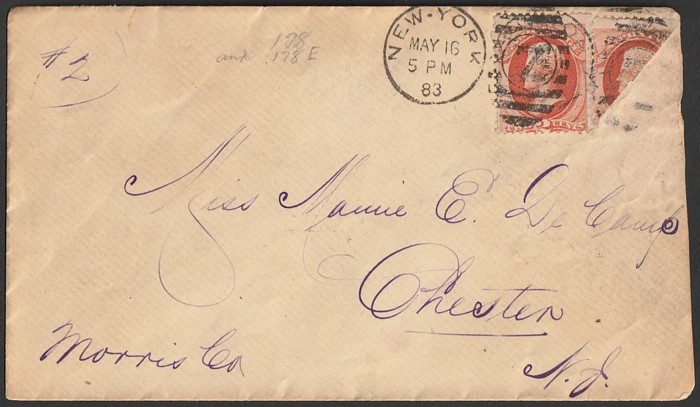 #2
178
and 178 E
NEW-YORK
MAY 16
5 PM
83
CENTS
Miss Mamie E. De Camp
Chester
Morris Co
N.J.